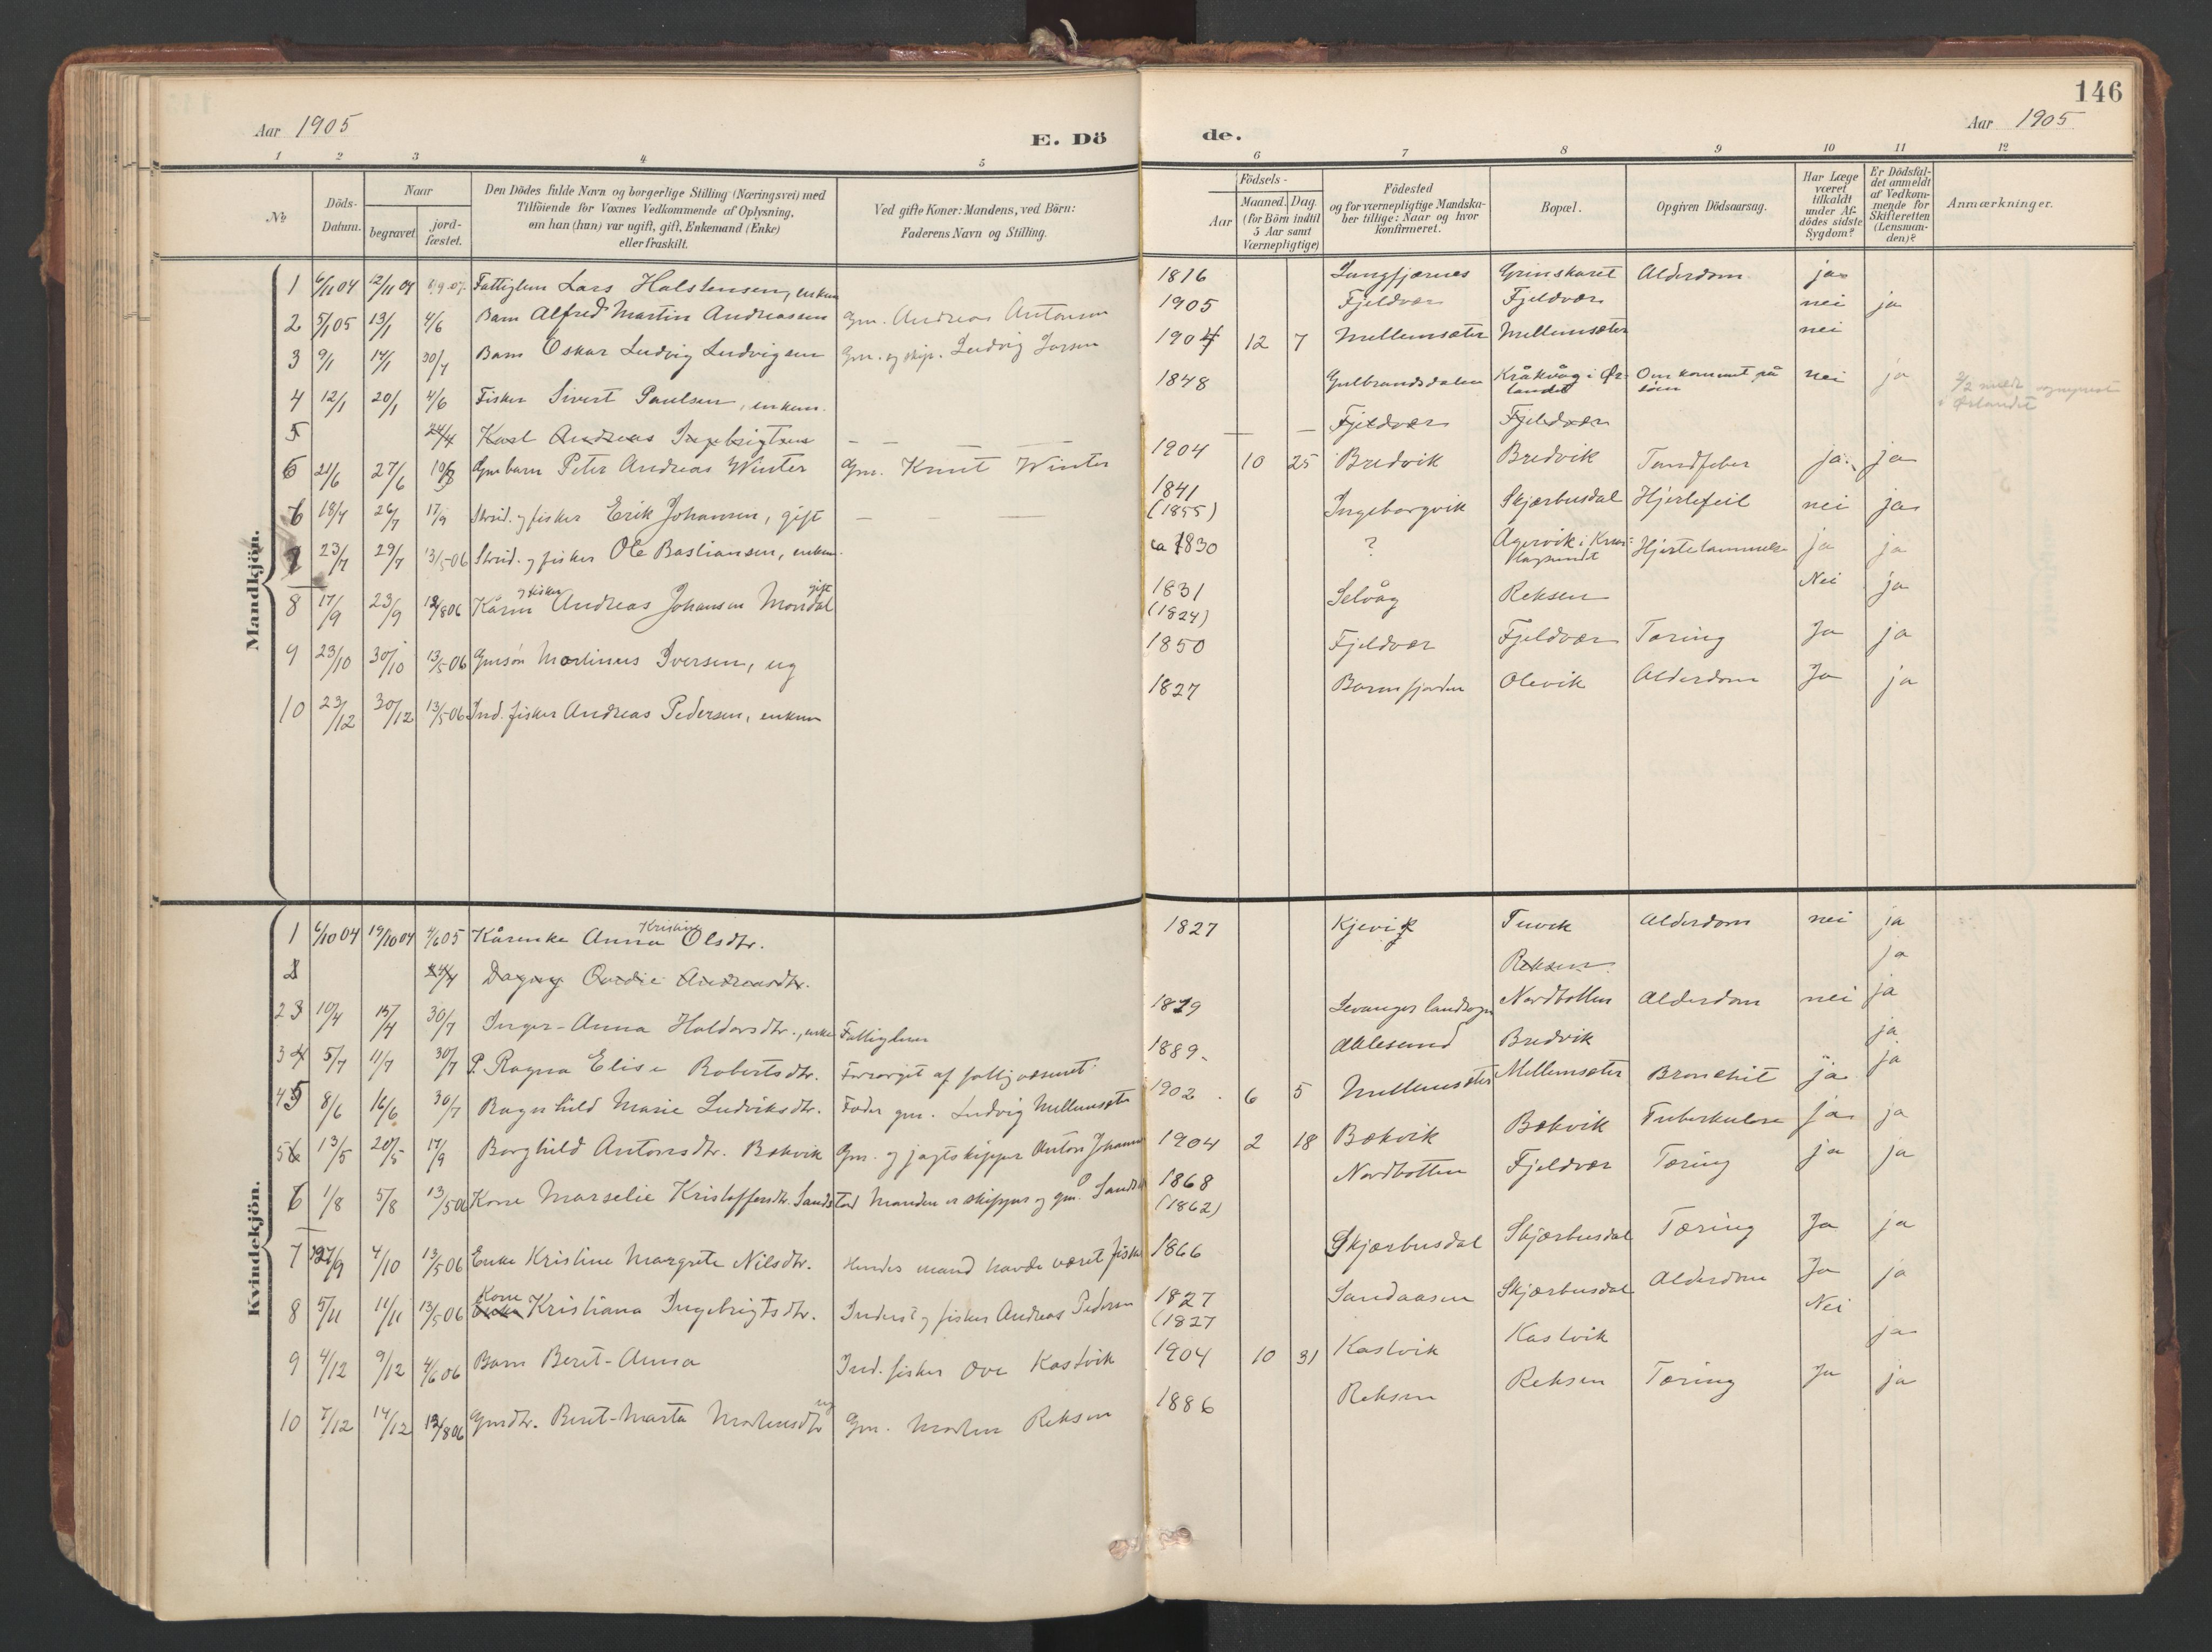 146
Aar 1905
E. Dö
de.
Aar 1905
1 2 3 4 5 6 7 8 9 10 11 12
No
Döds-
Datum.
Naar
begravet
jord-
fæstet.
Den Dödes fulde Navn og borgerlige Stilling (Næringsvei) med
Tilföiende for Voxnes Vedkommende af Oplysning,
om han (hun) var ugift, gift, Enkemand (Enke)
eller fraskilt.
Ved gifte Koner: Mandens, ved Börn:
Faderens Navn og Stilling.
Födsels-
Aar
Maaned. Dag.
(for Börn indtil
5 Aar samt
Værnepligtige)
Födested
og for værnepligtige Mandska-
ber tillige: Naar og hvor
konfirmeret.
Bopæl.
Opgiven Dödsaarsag.
Har Læge
været
tilkaldt
under Af-
dödes sidste
Sygdom?
Er Dödsfal-
det anmeldt
af Vedkom-
mende for
Skifteretten
(Lensman-
den)?
Anmærkninger.
Mandkjön.
1 6/11 04 12/11 04 Fattiglem Lars Halstensen, enkem 1816 Grinskaret Alderdom ja
2 5/1 05 13/1 4/6 Barn Alfred Martin Andreassen Gm. Andreas Antonsen 1905 Fjeldvær Fjeldvær nei ja
3 9/1 14/1 30/7 Barn Oskar Ludvig Ludvigsen Gm. og skip. Ludvig Larsen 1904 12 7 Mellemsæter Mellemsæter nei
4 12/1 20/1 4/6 Fisker Sivert Paulsen, enkem. 1848 Gulbrandsdalen Kråkvåg i Ør-
landet Omkommet på
sjøen nei ja
5 24/4 Karl Andreas Ingebrigtsen — — — Fjeldvær Fjeldvær
6 21/6 27/6 Gmbarn Peter Andreas Winter Gm. Knut Winter 1904 10 25 Bredvik Bredvik Tandfeber ja ja
6 18/7 26/7 17/9 Strid. og fisker Erik Johansen, gift — — — 1841
(1855) Ingeborgvik Skjærbusdal Hjertefeil nei ja
7 23/7 29/7 13/5 06 Strid. og fisker Ole Bastiansen, enkem. ca 1830 ? Agervik i Kris-
tiansund Hjertelammelse ja ja
8 17/9 23/9 12/8 06 Kårm og fisker Andreas Johansen Mondal gift 1831
(1824) Selvåg Reksen Nei ja
9 23/10 30/10 13/5 06 Gmsøn Martinus Iversen, ug 1850 Fjeldvær Fjeldvær Tæring Ja ja
10 23/12 30/12 13/5 06 Ind. fisker Andreas Pedersen, enkem 1827 Barmfjorden Olevik Alderdom Ja ja
Kvindekjön.
1 6/10 04 19/10 04 4/6 05 Kårenke Anna Kristine Olsdtr. 1827 Kjevik Tuvik Alderdom nei ja
2 24/4 Dagny Ovidie Andreasdtr. Reksen ja
2 3 10/4 15/4 30/7 Inger-Anna Haldorsdtr., enke Fattiglem 1829 Levanger landsogn Nordbotten Alderdom nei ja
3 4 5/7 11/7 30/7 P. Ragna Elise Robertsdtr. Forsørget af fattigvæsenet 1889 Aalesund Bredvik ja
4 5 8/6 16/6 30/7 Ragnhild Marie Ludviksdtr. Fader gm. Ludvig Mellemsæter 1902 6 5 Mellemsæter Mellemsæter Bronchit ja ja
5 6 13/5 20/5 17/9 Borghild Antonsdtr. Bækvik Gm. og jagtskipper Anton Johansen 1904 2 18 Bækvik Bækvik Tuberkulose ja ja
6 1/8 5/8 13/5 06 Kone Marselie Kristoffersdtr. Sandstad Manden er skipper og gm. 1868
(1862) Nordbotten Fjeldvær Tæring ja ja
7 27/9 4/10 13/5 06 Enke Kristine Margrete Nilsdtr. Hendes mand havde været fisker 1866 Skjærbusdal Skjærbusdal Tæring Ja ja
8 5/11 11/11 13/5 06 Enke Kone Kristiana Ingebrigtsdtr. Inderst og fisker Andreas Pedersen 1827
(1827 Sandaasen Skjærbusdal Alderdom Ja ja
9 4/12 9/12 4/6 06 Barn Berit-Anna Ind. fisker Ove Kastvik 1904 10 31 Kastvik Kastvik Nei ja
10 7/12 14/12 12/8 06 Gmdtr. Berit-Marta Mortensdtr ug Gm. Morten Reksen 1886 Reksen Reksen Tæring Ja ja